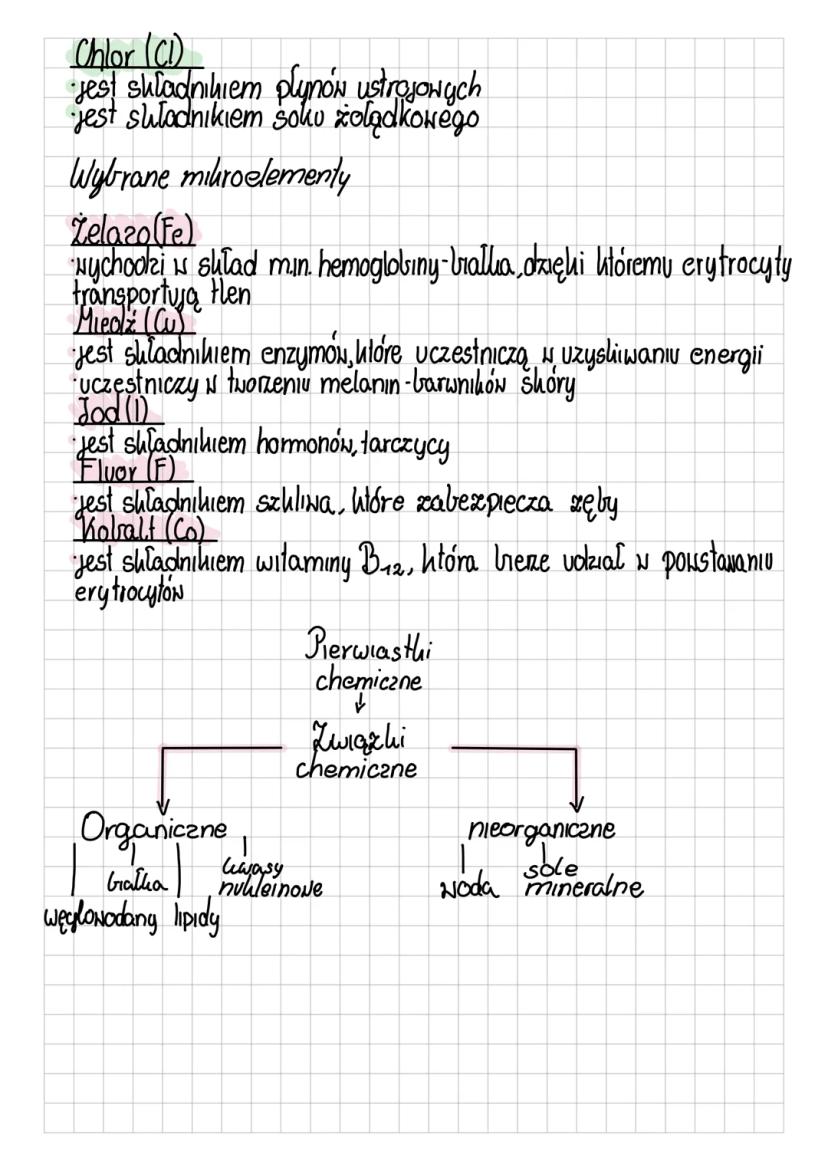 Chlor (Cl)
·jest składnikiem płynów ustrojowych
·jest składnikiem soku żołądkowego
Wybrane mikroelementy
Żelazo (Fe)
·wychodzi w skład m.in. hemoglobiny-białka, dzięki któremu erytrocyty
transportują tlen
Miedź (Cu)
·jest składnikiem enzymów, które uczestniczą w uzyskiwaniu energii
·uczestniczy w tworzeniu melanin-barwników skóry
Jod (I)
·jest składnikiem hormonów, tarczycy
Fluor (F)
·jest składnikiem szkliwa, które zabezpiecza zęby
Kobalt (Co)
·jest składnikiem witaminy B₁₂, która bierze udział w powstawaniu
erytrocytów
Pierwiastki
chemiczne
↓
Związki
chemiczne
Organiczne nieorganiczne
białka kwasy
nukleinowe
woda sole
mineralne
węglowodany lipidy